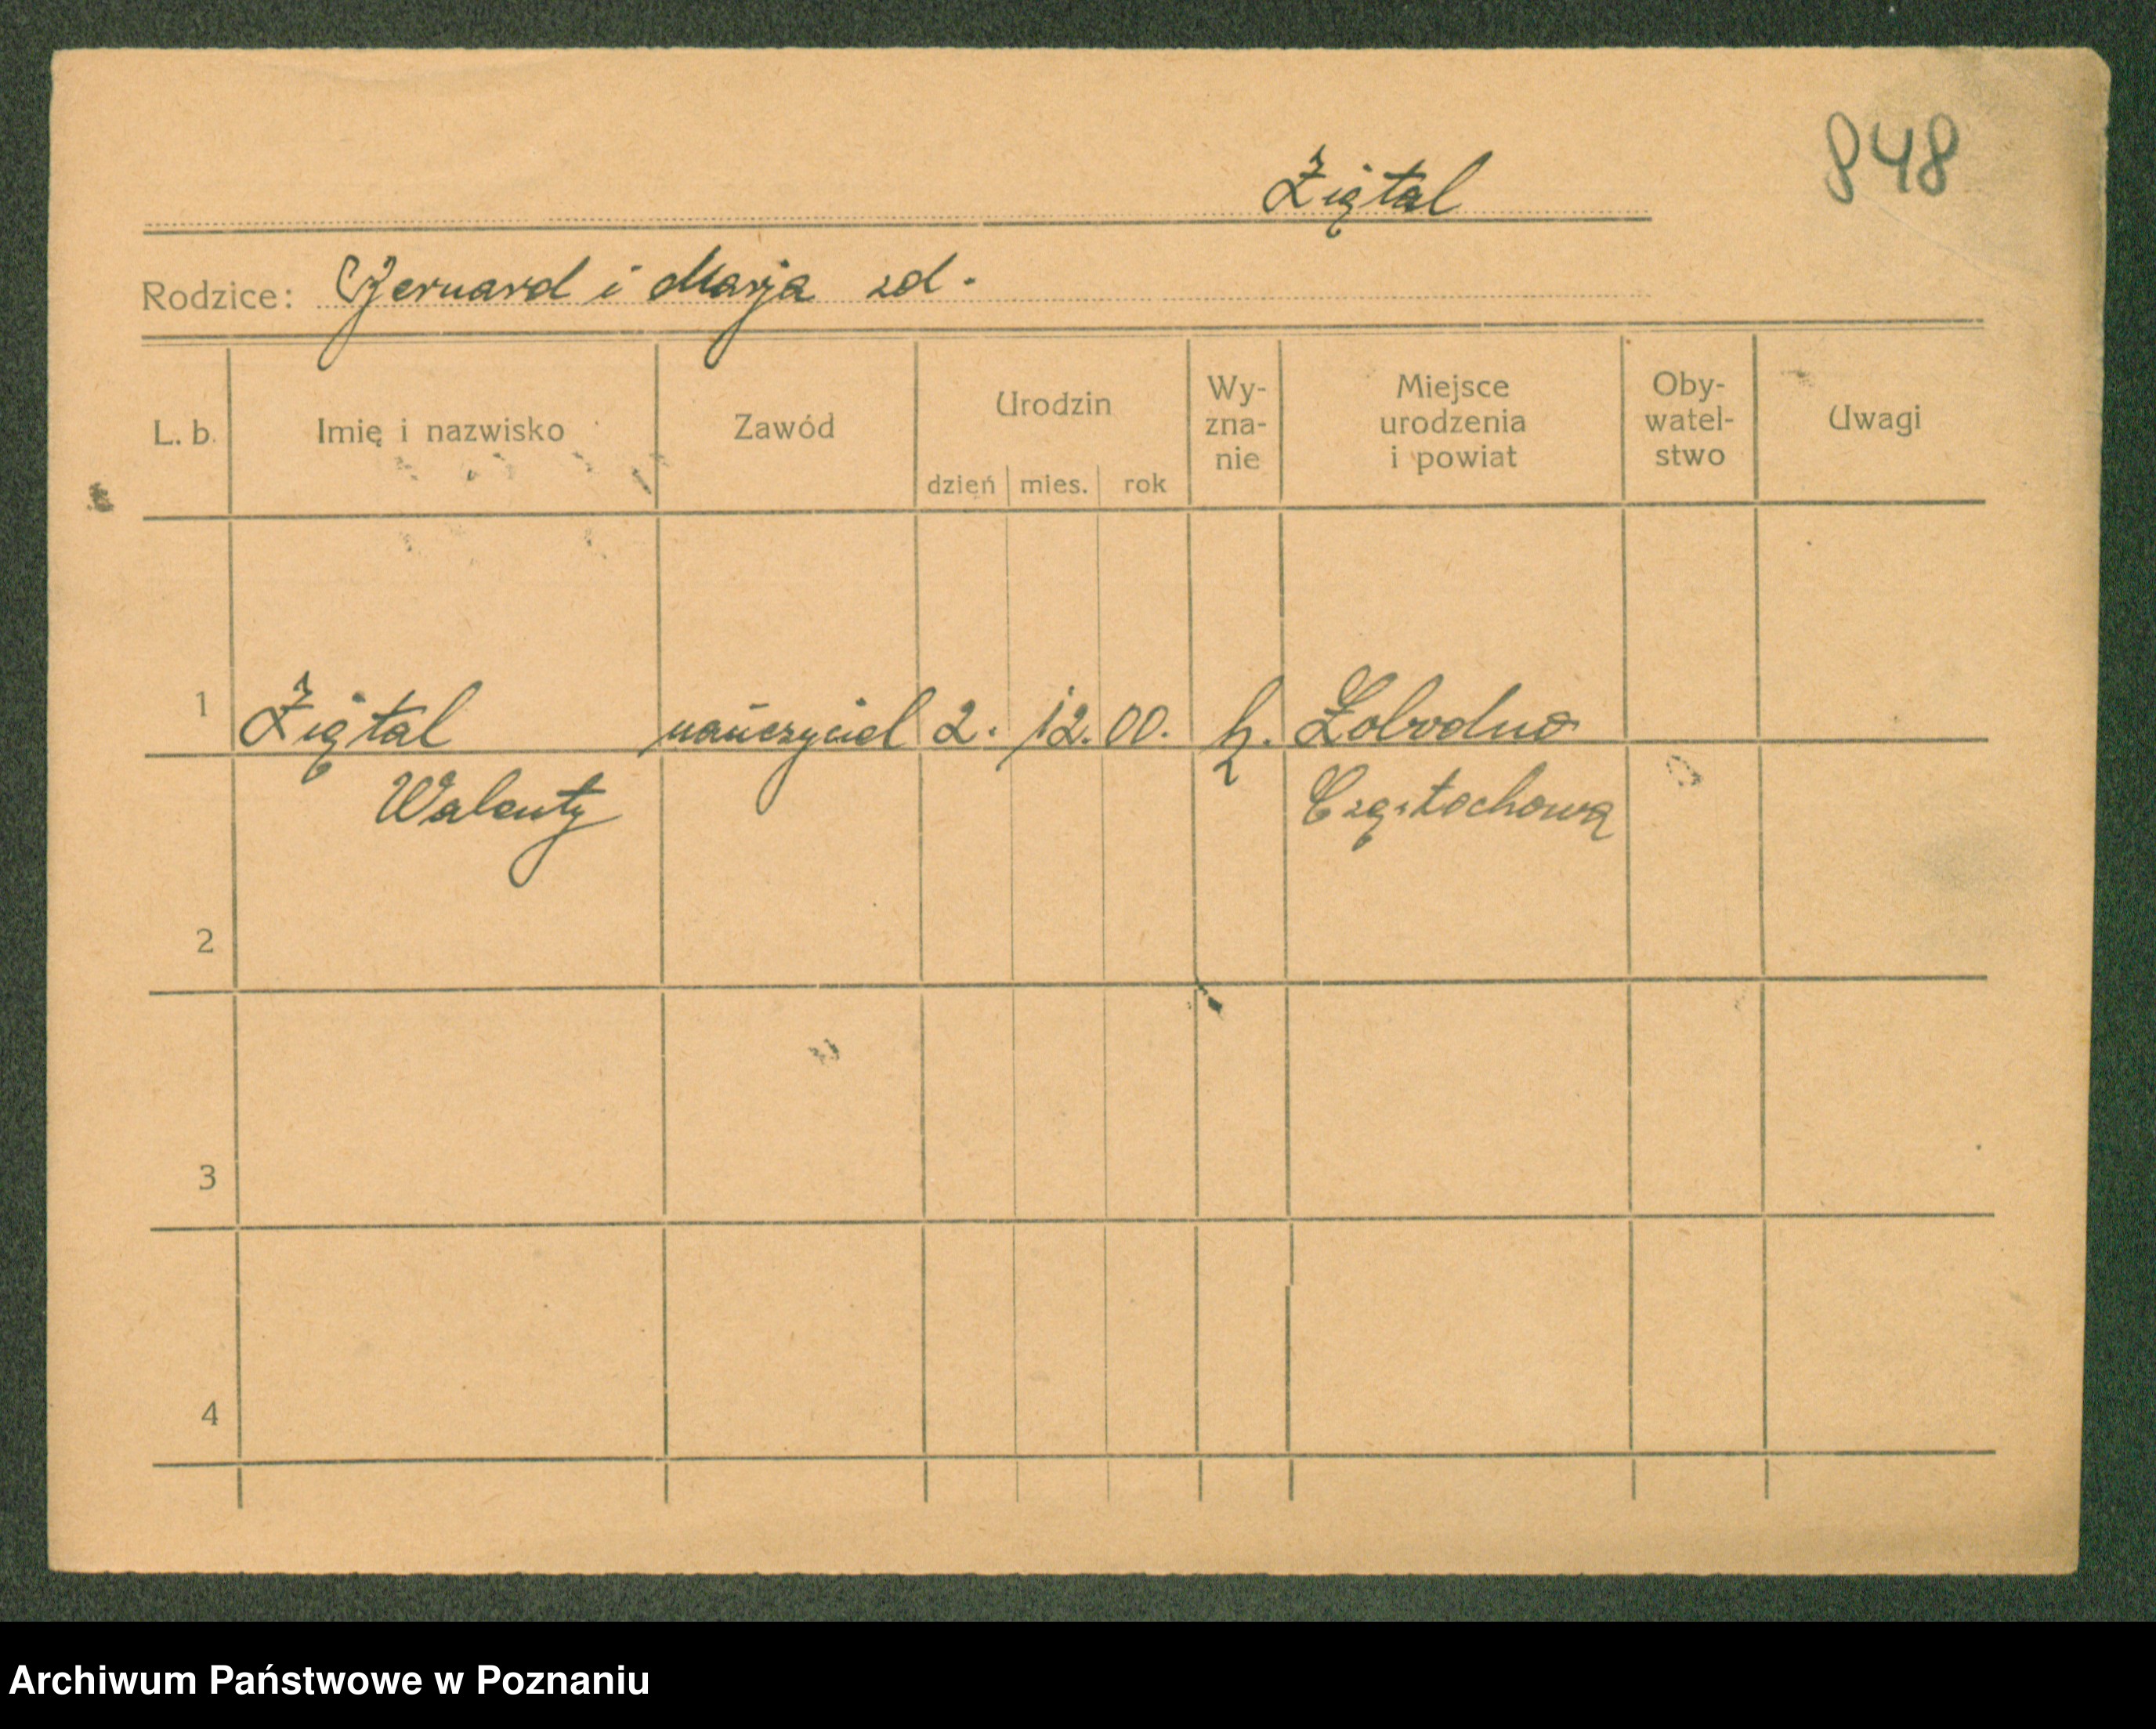 848
Ziętal
Rodzice: Bernard i Marja zd.
L. b. Imię i nazwisko Zawód Urodzin Wy-zna-nie Miejsce urodzenia i powiat Oby-watel-stwo Uwagi
dzień mies. rok
1 Ziętal nauczyciel 2. 12. 00. k. Łobodno
Walenty Częstochowa
2
3
4
Archiwum Państwowe w Poznaniu